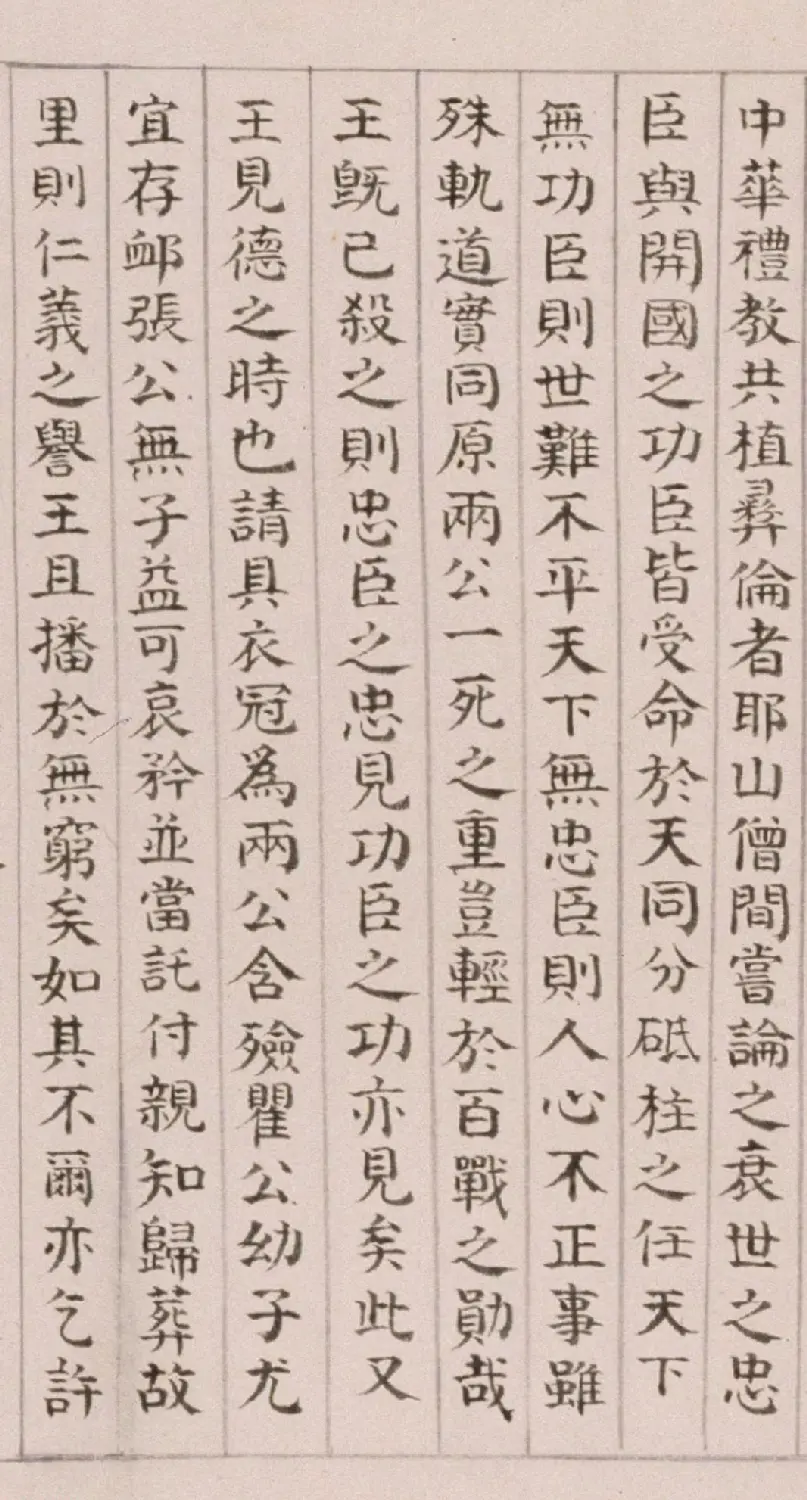 中華禮教共植彛倫者耶山僧間嘗論之衰世之忠
臣與開國之功臣皆受命於天同分砥柱之任天下
無功臣則世難不平天下無忠臣則人心不正事雖
殊軌道實同原兩公一死之重豈輕於百戰之勛哉
王旣已殺之則忠臣之忠見功臣之功亦見矣此又
王見德之時也請具衣冠爲兩公含殮瞿公幼子尤
宜存卹張公無子益可哀矜並當託付親知歸葬故
里則仁義之譽王且播於無窮矣如其不爾亦乞許